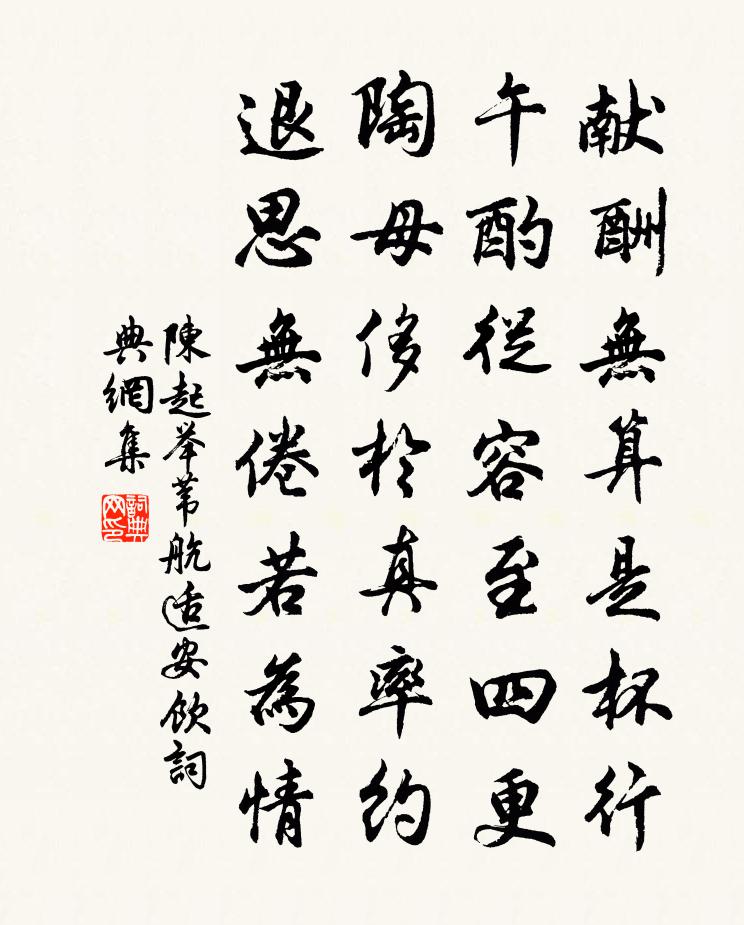 献酬無算是杯行
午酌從容至四更
陶母侈於真率約
退思無倦若為情
陳起举苇航适安飲詞
典網集
詞典網印